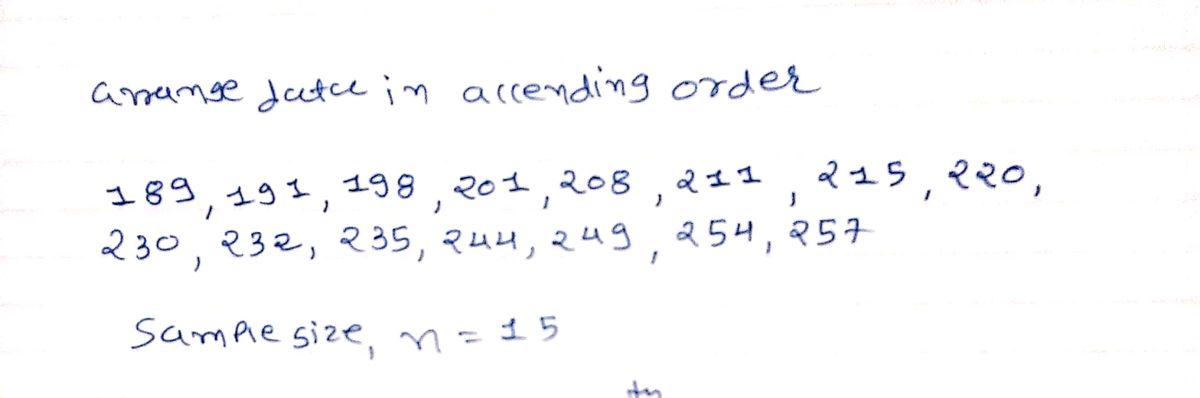 arrange data in accending order
189, 191, 198, 201, 208, 211, 215, 220,
230, 232, 235, 244, 249, 254, 257
Sample size, n = 15
th